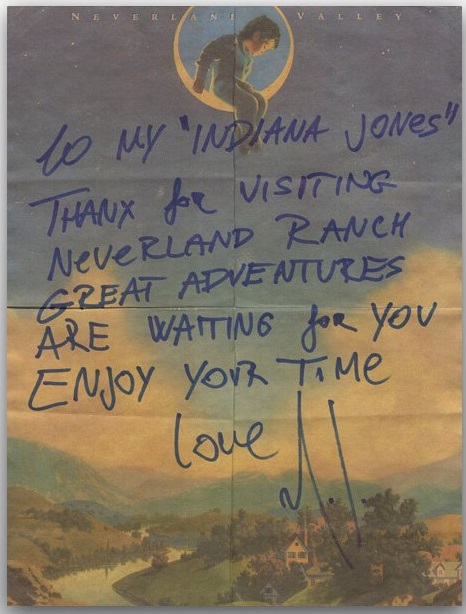 NEVERLAND VALLEY
TO MY "INDIANA JONES"
THANX for VISITING
NEVERLAND RANCH
GREAT ADVENTURES
ARE WAITING for YOU
ENJOY YOUR TIME
Love